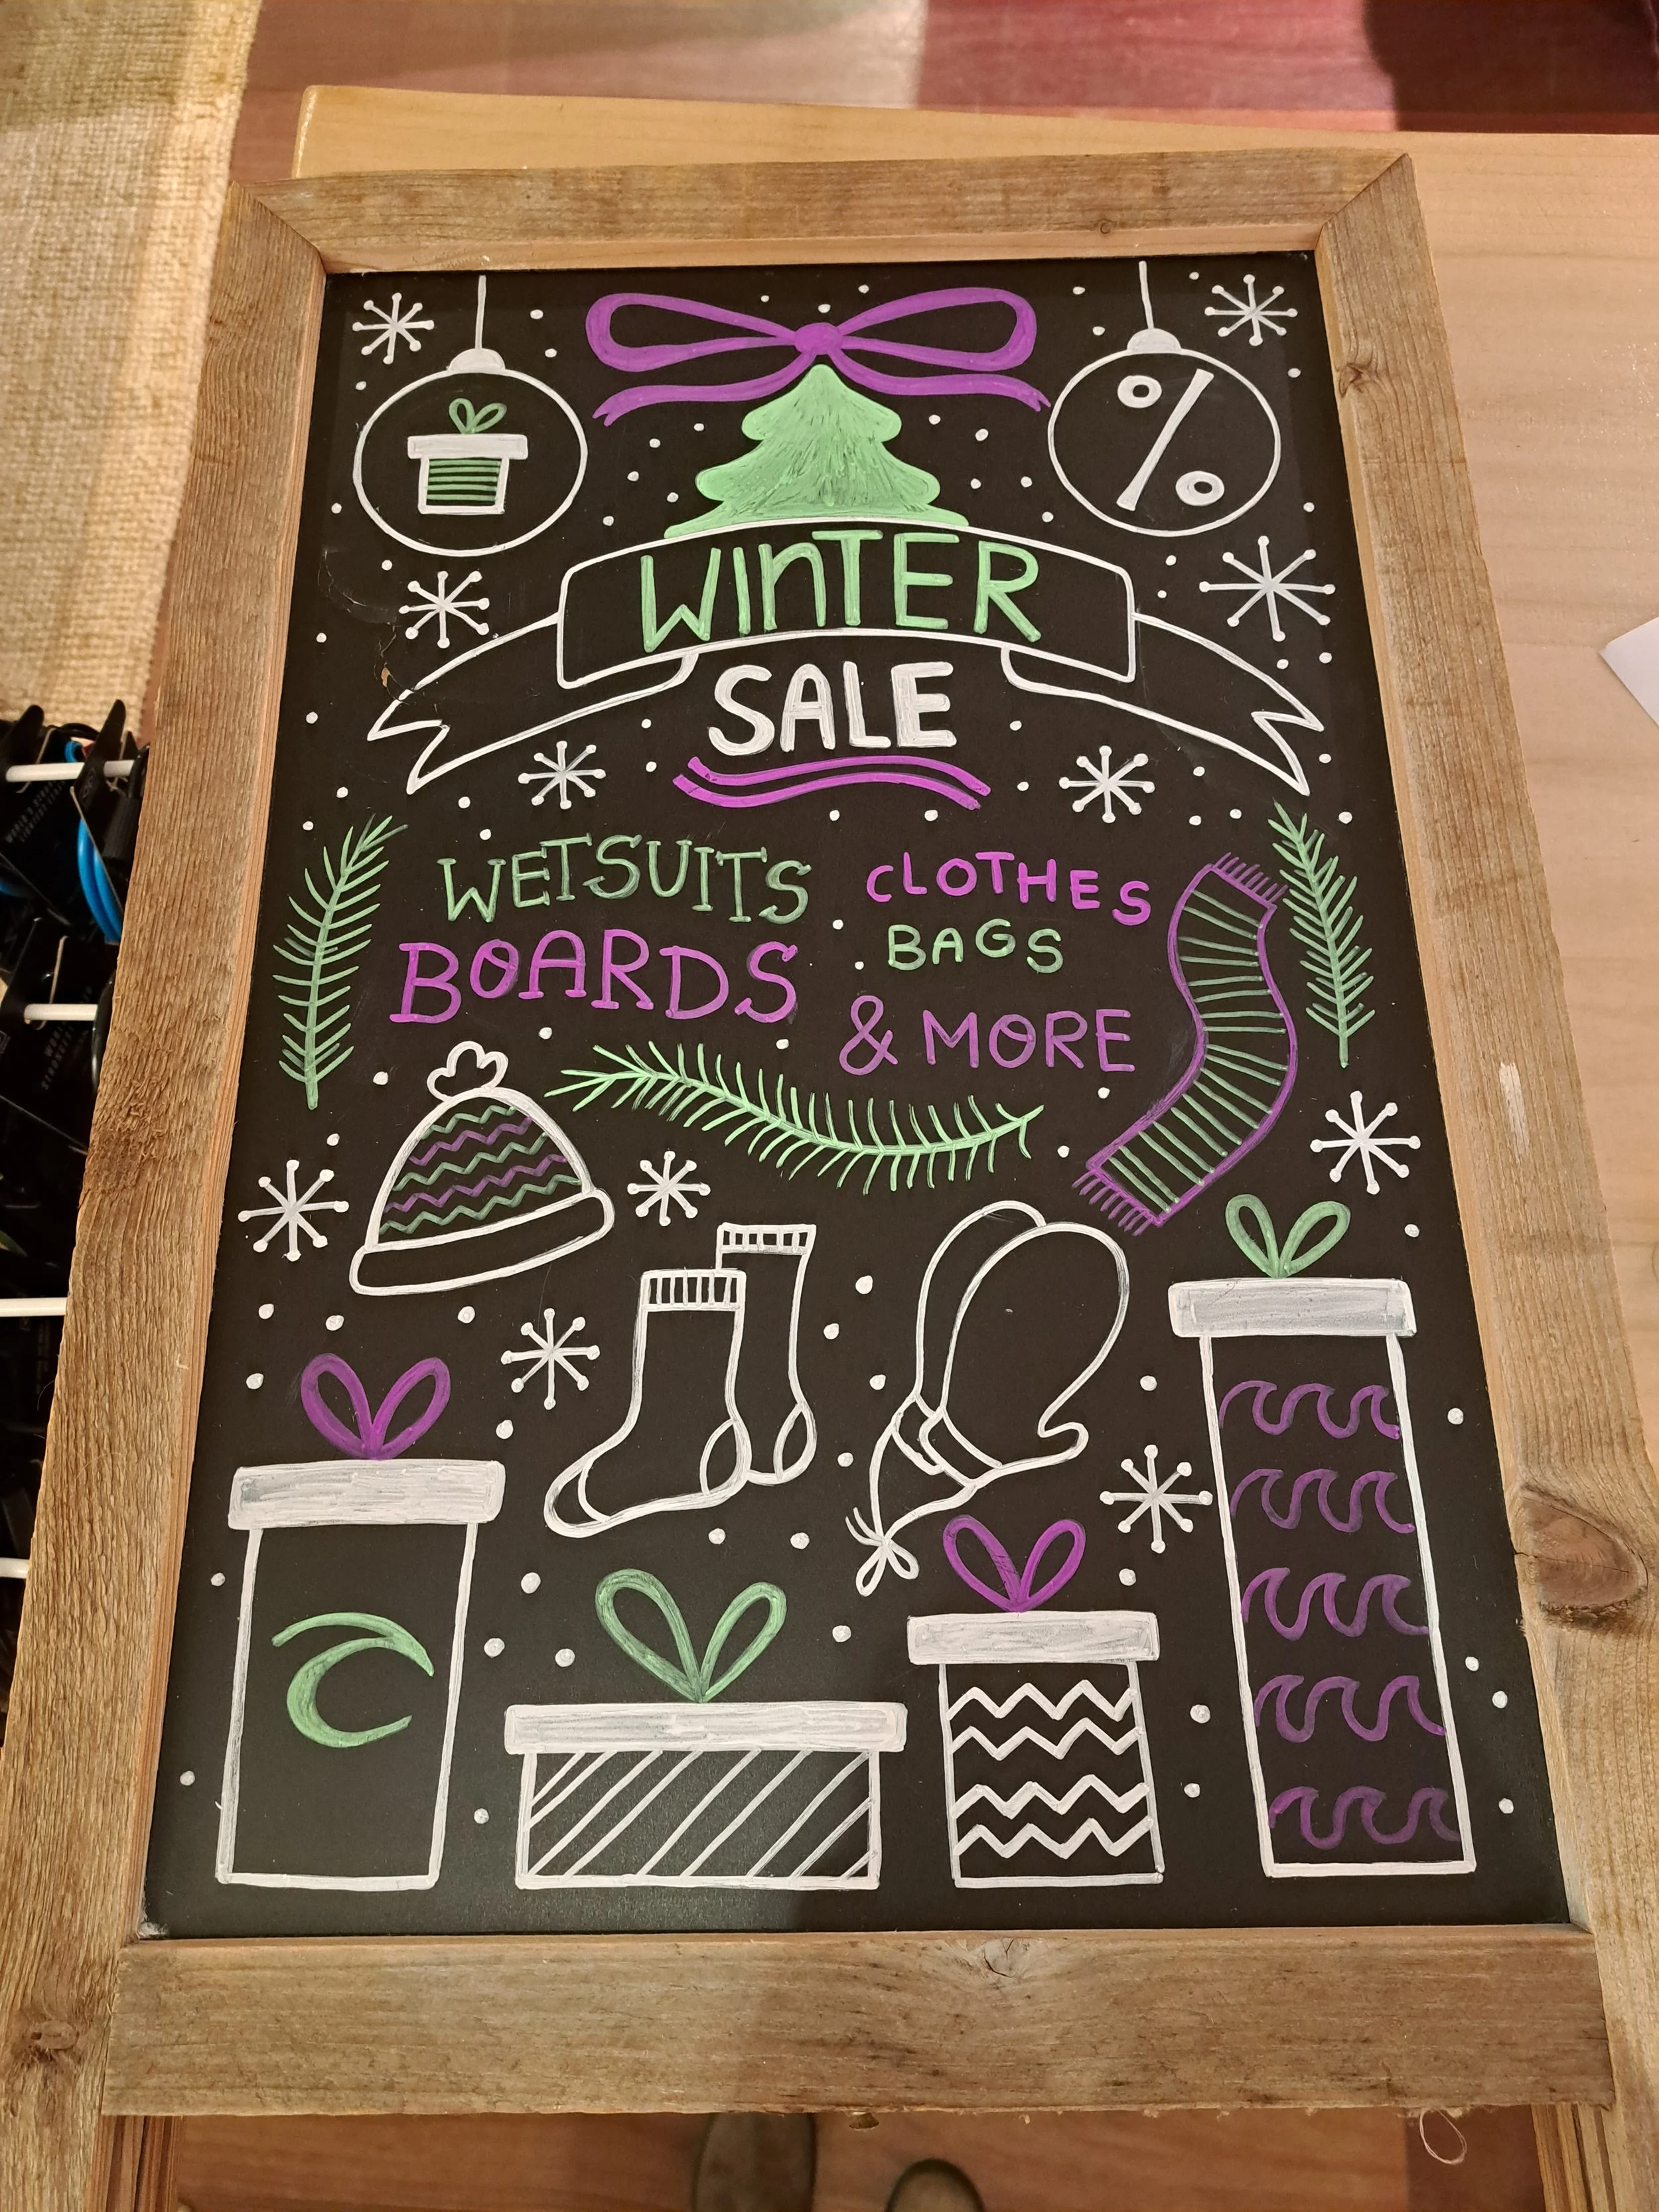 %
WINTER
SALE
WETSUITS
BOARDS
CLOTHES
BAGS
& MORE